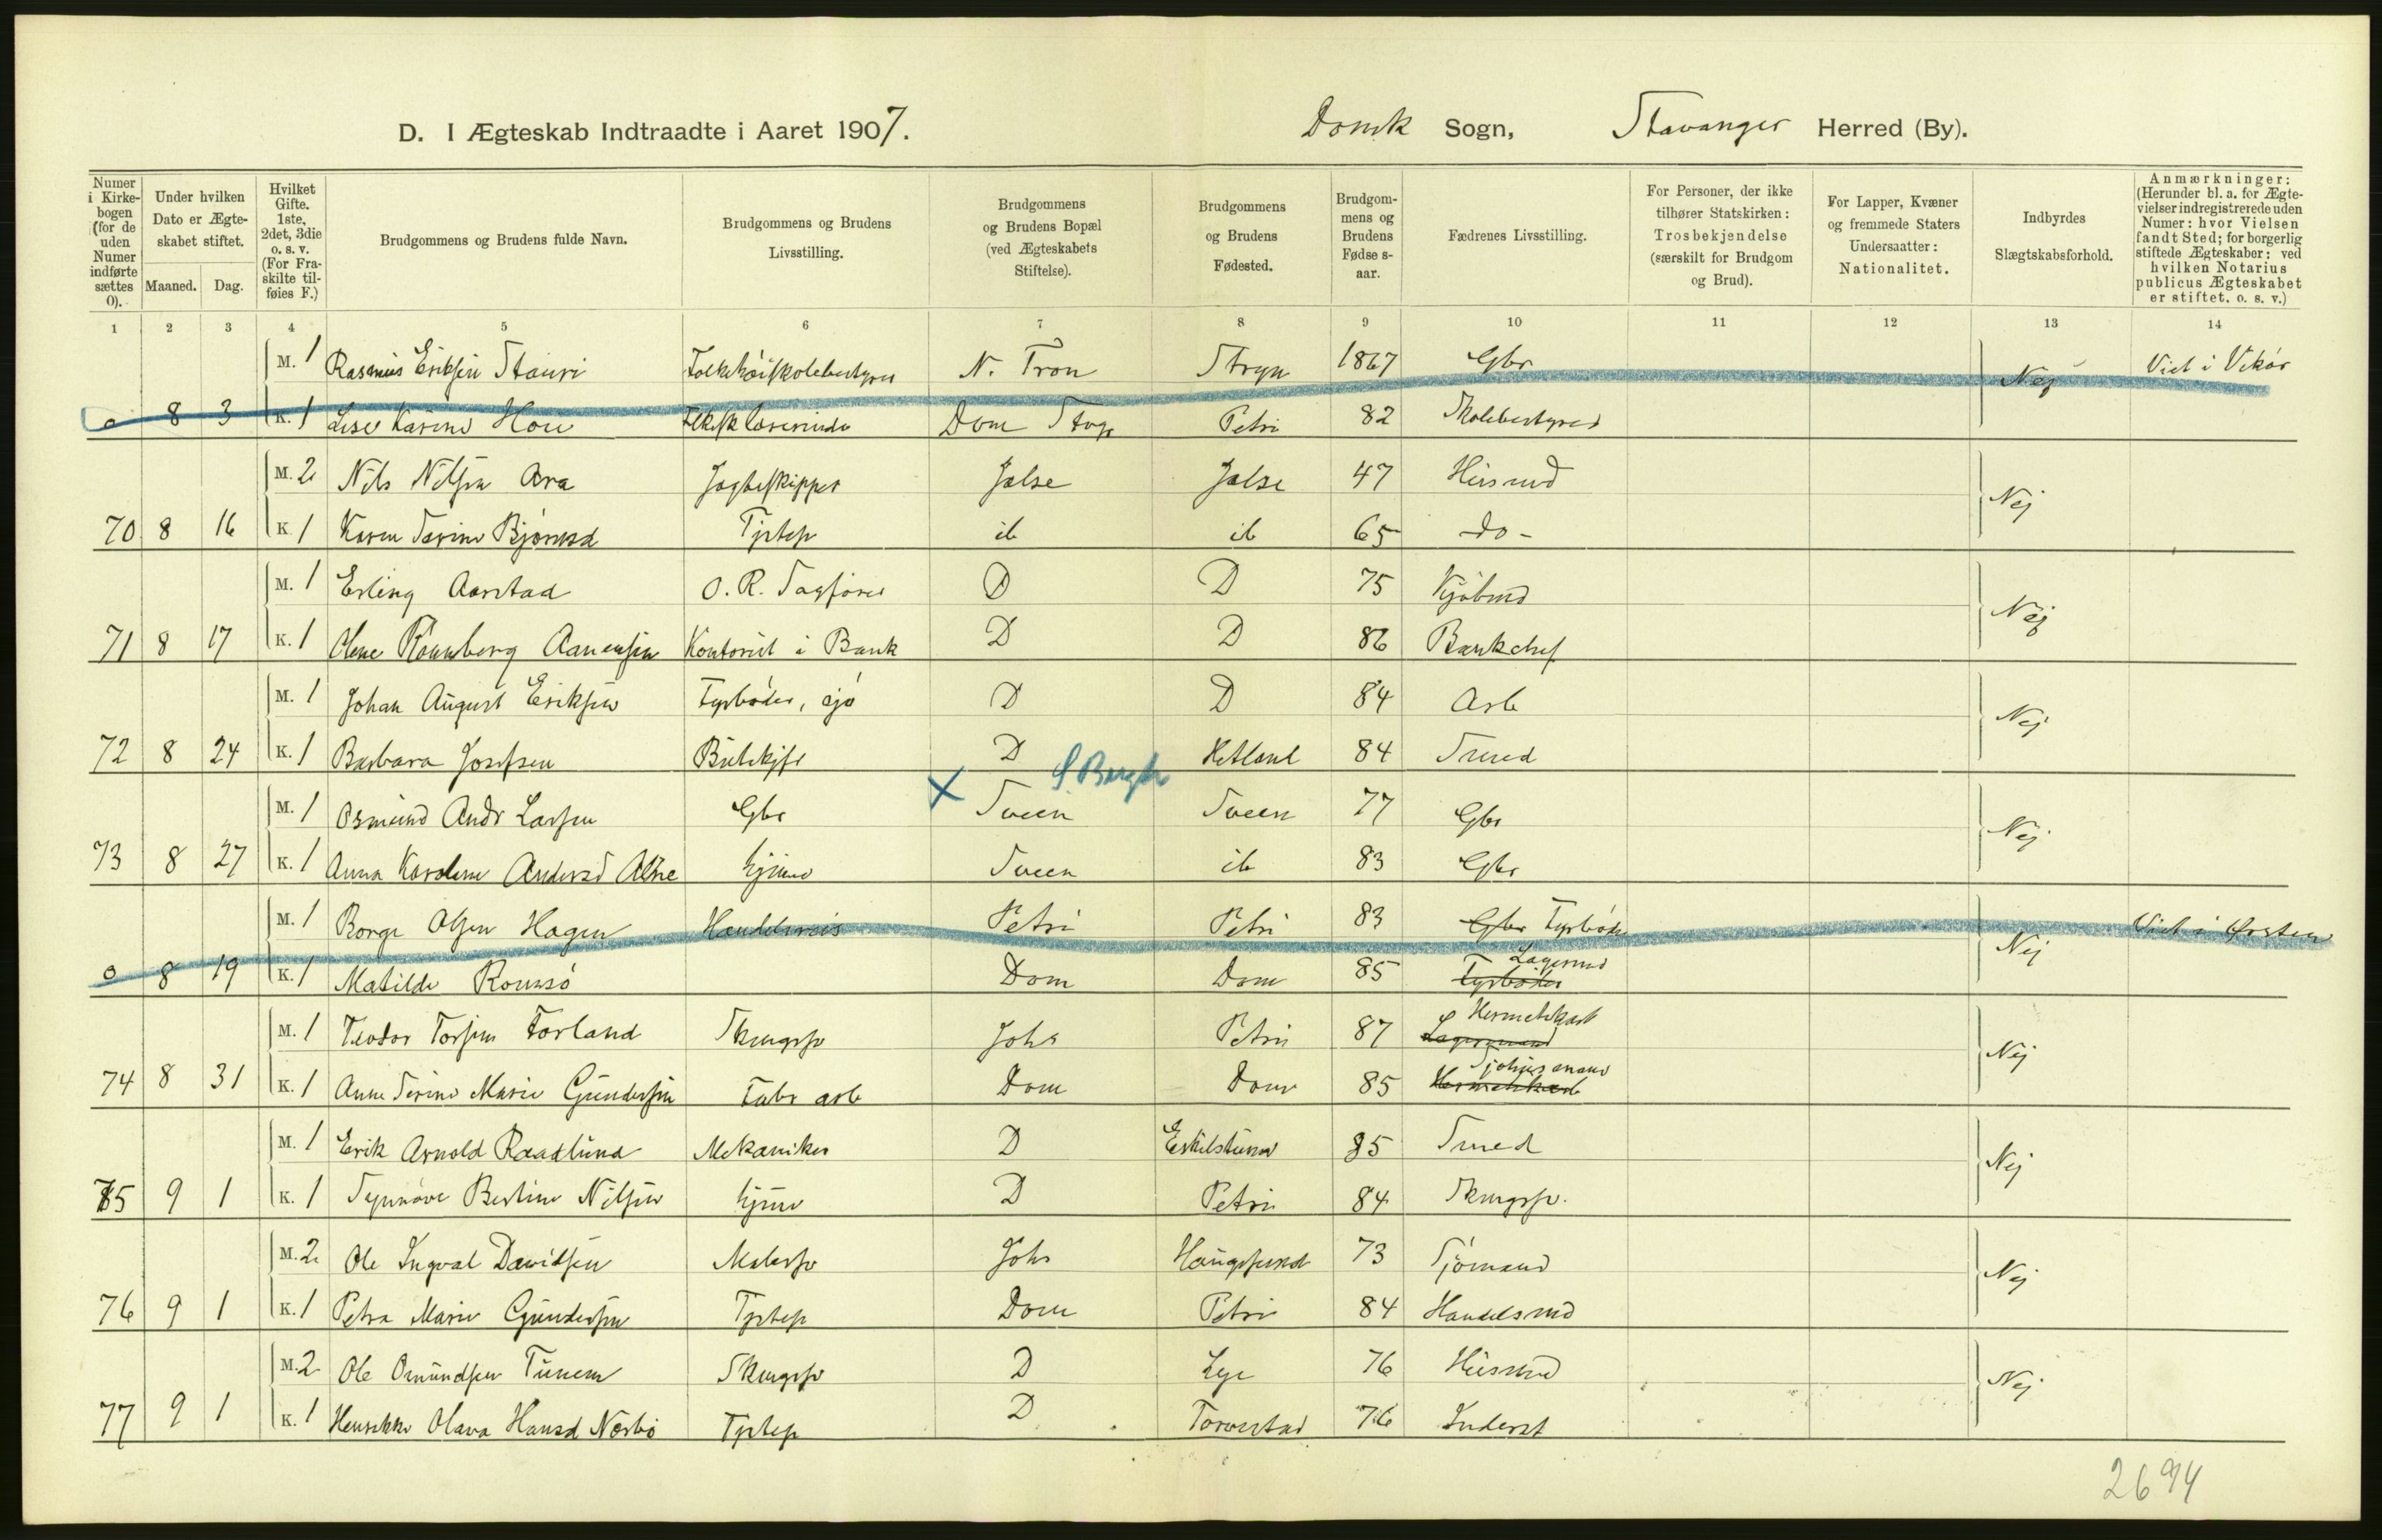 D. I Ægteskab Indtraadte i Aaret 1907. Domk Sogn, Stavanger Herred (By).
Numer i Kirke-
bogen
(for de
uden
Numer
indførte
sættes
0).
Under hvilken
Dato er Ægte-
skabet stiftet.
Maaned. Dag.
Hvilket
Gifte.
1ste,
2det, 3die
o. s. v.
(For Fra-
skilte til-
føies F.)
Brudgommens og Brudens fulde Navn.
Brudgommens og Brudens
Livsstilling.
Brudgommens
og Brudens Bopæl
(ved Ægteskabets
Stiftelse).
Brudgommens
og Brudens
Fødested.
Brudgom-
mens og
Brudens
Fødse s-
aar.
Fædrenes Livsstilling.
For Personer, der ikke
tilhører Statskirken:
Trosbekjendelse
(særskilt for Brudgom
og Brud).
For Lapper, Kvæner
og fremmede Staters
Undersaatter:
Nationalitet.
Indbyrdes
Slægtskabsforhold.
Anmærkninger:
(Herunder bl. a. for Ægte-
vielser indregistrerede uden
Numer: hvor Vielsen
fandt Sted; for borgerlig
stiftede Ægteskaber: ved
hvilken Notarius
publicus Ægteskabet
er stiftet, o. s. v.)
1 2 3 4 5 6 7 8 9 10 11 12 13 14
M. 1 Rasmus Eriksen Stauri Folkehøiskolebestyrer N. Tron Stryn 1867 Gbr Nej Viet i Vikør
0 8 3 K. 1 Lise Karine Hou Dom Stvgr Petri 82 Skolebestyrer
M. 2 Nils Nilsen Ara Jagteskipper Jelse Jelse 47 Husmd Nej
70 8 16 K. 1 Karen Serine Bjørnsd Tjstep ib ib 65 do -
M. 1 Erling Aarstad O. R. Sagfører D D 75 Kjøbmd Nej
71 8 17 K. 1 Olene Rønneberg Aanensen Kontorist i Bank D D 86 Bankchef
M. 1 Johan August Eriksen Fyrbøder, sjø D D 84 Arb Nej
72 8 24 K. 1 Barbara Josefsen D Hetland 84 Smed
S. Bergh
M. 1 Osmund Andr Larsen Gbr X Sveen Sveen 77 Gbr Nej
73 8 27 K. 1 Anna Karoline Andersd hjme Sveen ib 83 Gbr
M. 1 Borge Olsen Hagen Handelsreis Petri Petri 83 Gbr Fyrbøder Nej Viet i Ørsten
0 8 19 K. 1 Matilde Romsø Dom Dom 85 Fyrbøder Lagermd
M. 1 Teodor Torsen Forland Skmgsv Johs Petri 87 Lagermand Hermetikarb Nej
74 8 31 K. 1 Anne Serine Marie Gundersen Fabr arb Dom Dom 85 Hermetikarb
M. 1 Erik Arnold Raadlund Mekaniker D Eskilstuna 85 Smed Nej
75 9 1 K. 1 Synnøve Bertine Nilsen hjme D Petri 84 Skmgsv.
M. 2 Ole Ingval Davidsen Malersv Johs Haugesund 73 Sjømand Nej
76 9 1 K. 1 Petra Marie Gundersen Tjstep Dom Petri 84 Handelsmd
M. 2 Ole Omundsen Tunem Skmgsv D Lye 76 Husmd Nej
77 9 1 K. 1 Henrikke Olava Hansd Nesbø Tjstep D Torvestad 76 Inderst
2694